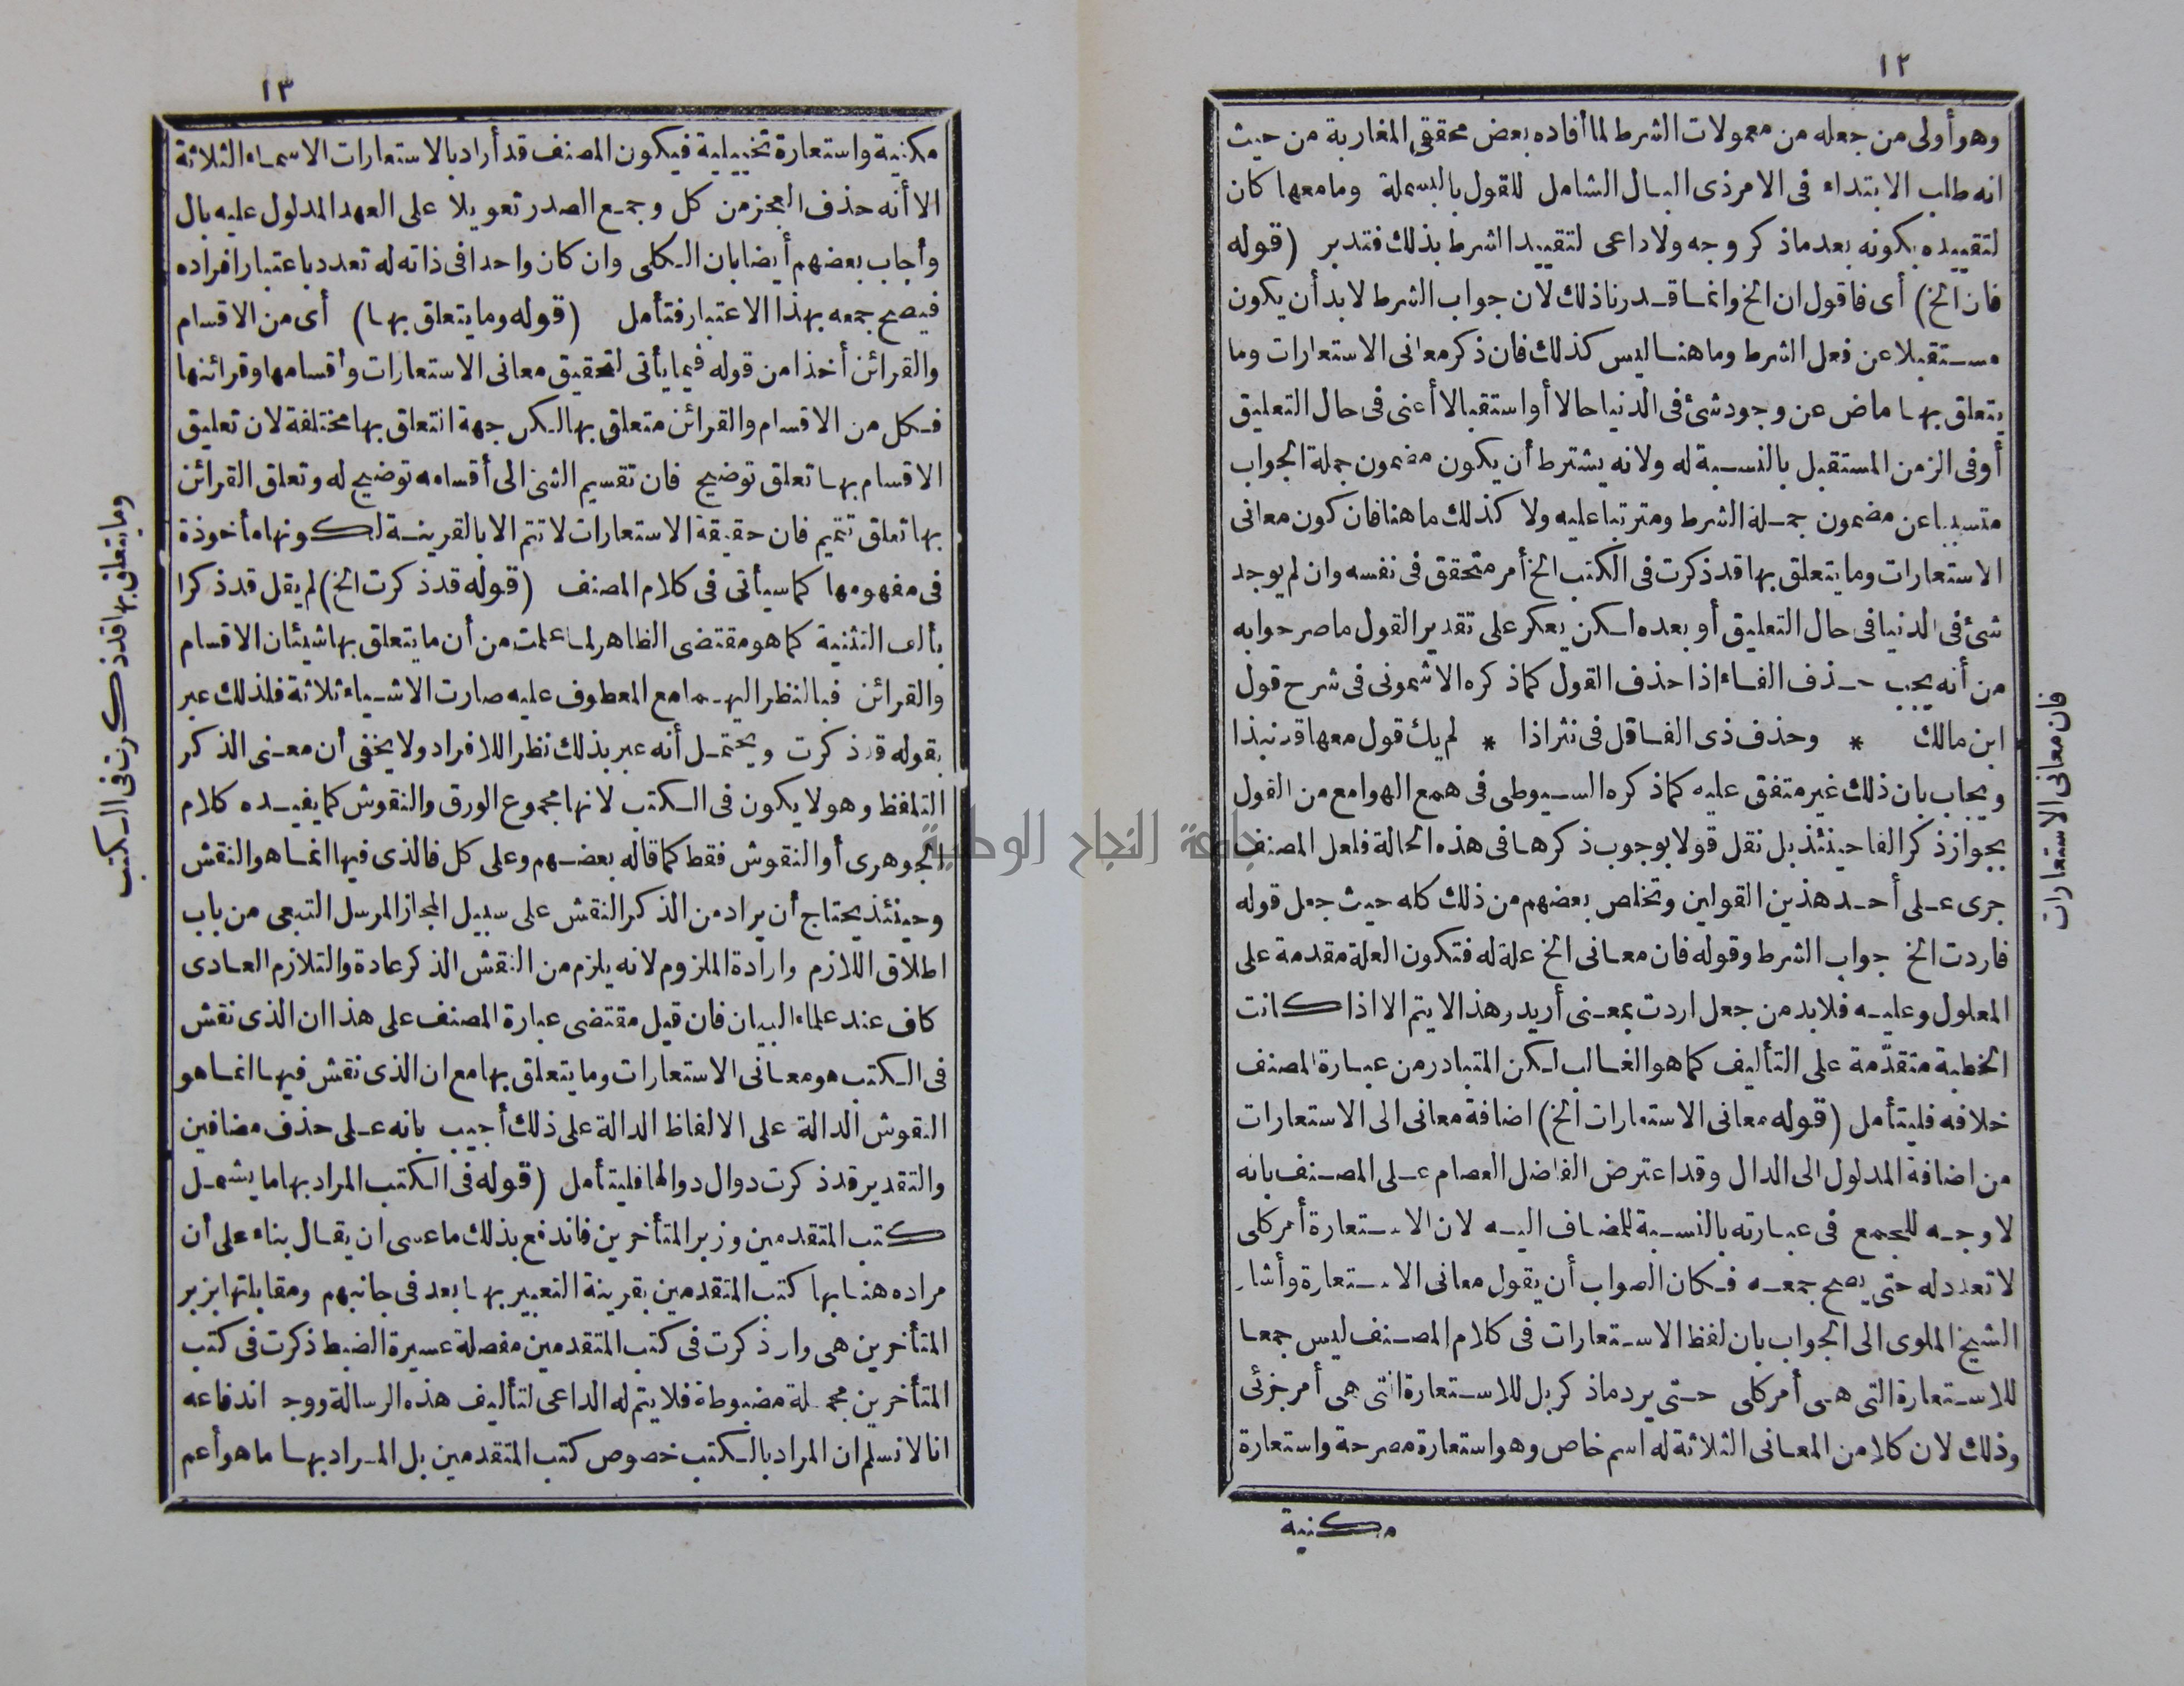 ١٢
وهو أولى من جعله من معمولات الشرط لما أفاده بعض محققى المغاربة من حيث
انه طلب الابتداء فى الامر ذى البال الشامل للقول بالبسملة وما معها كان
لتقييده بكونه بعد ماذكر وجه ولا داعى لتقييد الشرط بذلك فتدبر (قوله
فان الخ) أى فاقول ان الخ وانما قدرنا ذلك لان جواب الشرط لابد أن يكون
مستقبلا عن فعل الشرط وما هنا ليس كذلك فان ذكر معانى الاستعارات وما
يتعلق بها ماض عن وجود شئ فى الدنيا حالا أو استقبالا أعنى فى حال التعليق
أو فى الزمن المستقبل بالنسبة له ولانه يشترط أن يكون مضمون جملة الجواب
متسببا عن مضمون جملة الشرط ومترتبا عليه ولا كذلك ما هنا فان كون معانى
الاستعارات وما يتعلق بها قد ذكرت فى الكتب الخ أمر متحقق فى نفسه وان لم يوجد
شئ فى الدنيا فى حال التعليق أو بعده لكن يعكر على تقدير القول ما صرحوا به
من أنه يجب حذف الفاء اذا حذف القول كما ذكره الاشمونى فى شرح قول
ابن مالك * وحذف ذى الفا قل فى نثر اذا * لم يك قول معها قد نبذا
ويجاب بان ذلك غير متفق عليه كما ذكره السيوطى فى همع الهوامع من القول
بجواز ذكر الفا حينئذ بل نقل قولا بوجوب ذكرها فى هذه الحالة فلعل المصنف
جرى على أحد هذين القولين وتخلص بعضهم من ذلك كله حيث جعل قوله
فاردت الخ جواب الشرط وقوله فان معانى الخ علة له فتكون العلة مقدمة على
المعلول وعليه فلابد من جعل اردت بمعنى أريد وهذا لا يتم الا اذا كانت
الخطبة متقدّمة على التأليف كما هو الغالب لكن المتبادر من عبارة المصنف
خلافه فليتأمل (قوله معانى الاستعارات الخ) اضافة معانى الى الاستعارات
من اضافة المدلول الى الدال وقد اعترض الفاضل العصام على المصنف بانه
لا وجه للجمع فى عبارته بالنسبة للمضاف اليه لان الاستعارة أمر كلى
لا تعدد له حتى يصح جمعه فكان الصواب أن يقول معانى الاستعارة وأشار
الشيخ الملوى الى الجواب بان لفظ الاستعارات فى كلام المصنف ليس جمعا
للاستعارة التى هى أمر كلى حتى يرد ماذكر بل للاستعارة التى هى أمر جزئى
وذلك لان كلا من المعانى الثلاثة له اسم خاص وهو استعارة مصرحة واستعارة
مكنية
فان معانى الاستعارات
١٣
مكنية واستعارة تخييلية فيكون المصنف قد أراد بالاستعارات الاسماء الثلاثة
الا أنه حذف العجز من كل وجمع الصدر تعويلا على العهد المدلول عليه بال
وأجاب بعضهم أيضا بان الكلى وان كان واحدا فى ذاته له تعدد باعتبار افراده
فيصح جمعه بهذا الاعتبار فتأمل (قوله وما يتعلق بها) أى من الاقسام
والقرائن أخذا من قوله فيما يأتى لتحقيق معانى الاستعارات وأقسامها وقرائنها
فكل من الاقسام والقرائن متعلق بها لكن جهة التعلق بها مختلفة لان تعليق
الاقسام بها تعلق توضيح فان تقسيم الشئ الى أقسامه توضيح له وتعلق القرائن
بها تعلق تتميم فان حقيقة الاستعارات لا تتم الا بالقرينة لكونها مأخوذة
فى مفهومها كما سيأتى فى كلام المصنف (قوله قد ذكرت الخ) لم يقل قد ذكرا
بألف التثنية كما هو مقتضى الظاهر لما علمت من أن ما يتعلق بها شيئان الاقسام
والقرائن فبالنظر اليهما مع المعطوف عليه صارت الاشياء ثلاثة فلذلك عبر
بقوله قد ذكرت ويحتمل أنه عبر بذلك نظرا للافراد ولا يخفى أن معنى الذكر
التلفظ وهو لا يكون فى الكتب لانها مجموع الورق والنقوش كما يفيده كلام
الجوهرى أو النقوش فقط كما قاله بعضهم وعلى كل فالذى فيها انما هو النقش
وحينئذ يحتاج أن يراد من الذكر النقش على سبيل المجاز المرسل التبعى من باب
اطلاق اللازم وارادة الملزوم لانه يلزم من النقش الذكر عادة والتلازم العادى
كاف عند علماء البيان فان قيل مقتضى عبارة المصنف على هذا ان الذى نقش
فى الكتب هو معانى الاستعارات وما يتعلق بها مع ان الذى نقش فيها انما هو
النقوش الدالة على الالفاظ الدالة على ذلك أجيب بانه على حذف مضافين
والتقدير قد ذكرت دوال دوالها فليتأمل (قوله فى الكتب المراد بها ما يشمل
كتب المتقدمين وزبر المتأخرين فاندفع بذلك ما عسى ان يقال بناء على أن
مراده هنا بها كتب المتقدمين بقرينة التعبير بها بعد فى جانبهم ومقابلتها بزبر
المتأخرين هى وان ذكرت فى كتب المتقدمين مفصلة عسيرة الضبط ذكرت فى كتب
المتأخرين مجملة مضبوطة فلا يتم له الداعى لتأليف هذه الرسالة ووجه اندفاعه
انا لا نسلم ان المراد بالكتب خصوص كتب المتقدمين بل المراد بها ما هو أعم
وما يتعلق بها قد ذكرت فى الكتب
جامعة النجاح الوطنية